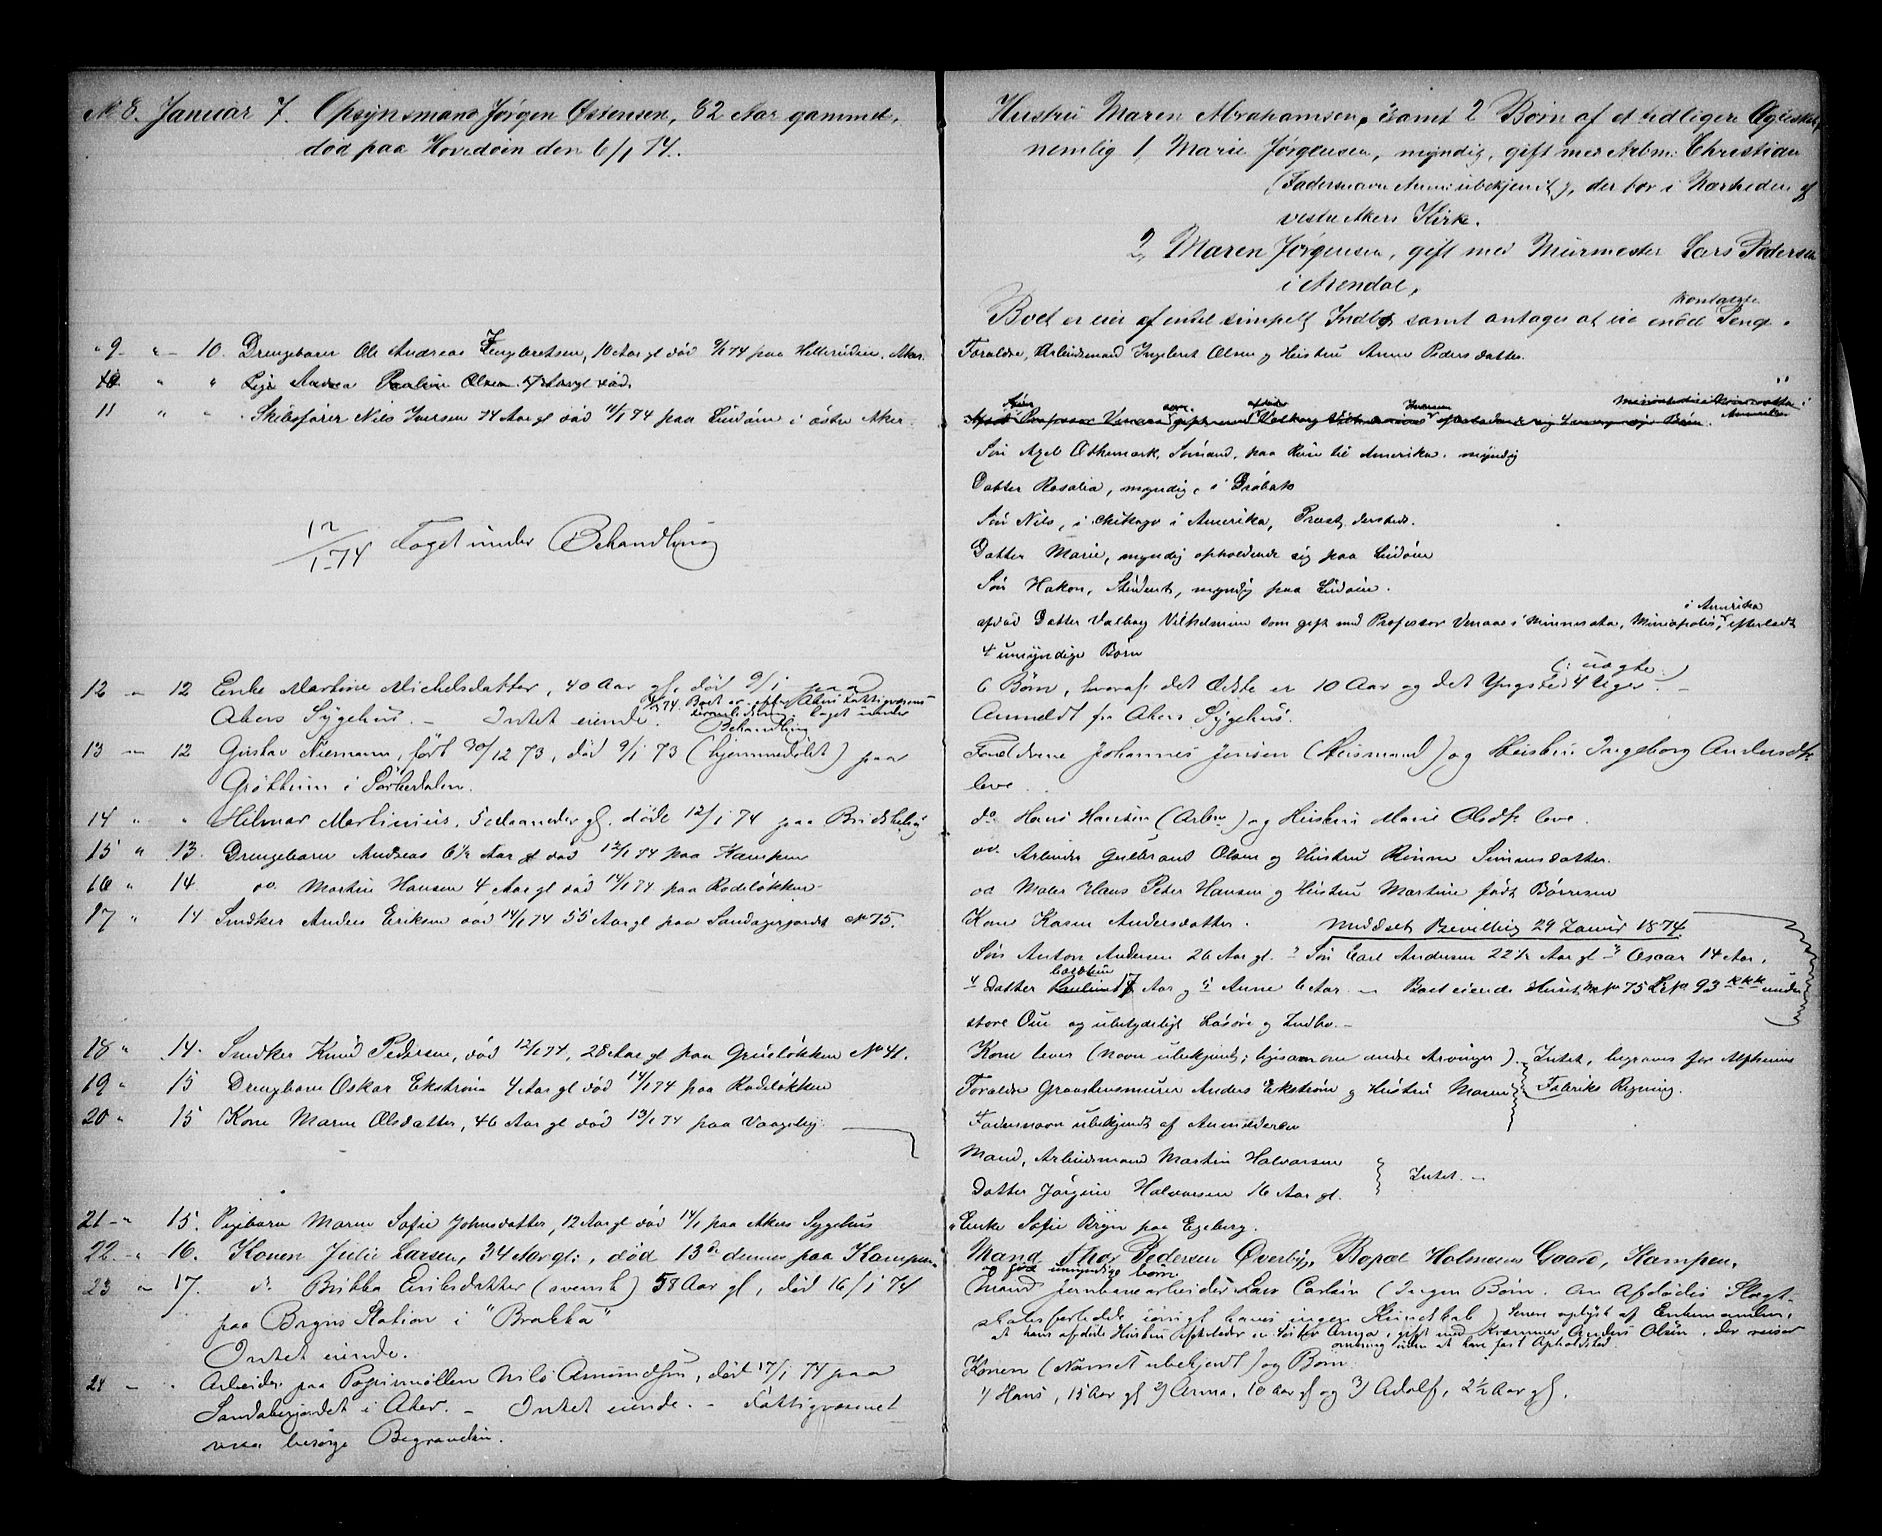 № 8. Januar 7. Opsynsmand Jørgen Østensen, 82 Aar gammel,
død paa Hovedøen den 6/1 74.
" 9 " - 10. Drengebarn Ole Andreas Engbretsen, 10 Aar gl død 9/1 74 paa Hellerudsen, Aker.
10 " " Pige Andrea Pauline Olsen 17 Aar gl død.
11 " " Skibsfører Nils Iversen 74 Aar gl død 11/1 74 paa Lindøen i østre Aker.
12/1-74 Taget under Behandling
12 - " 12 Enke Martine Michelsdatter, 40 Aar gl. død 9/1 74 paa
Akers Sygehus. - Intet eiende. Boet er efter Akers Fattigvæsens
taget under
Behandling
13 - 12 Gustav Niemann, født 30/12 73, død 9/1 73 (hjemmedøbt) paa
Grøttum i Sørkedalen.
14 " " Helmar Martinius, 5 Maaneder gl. døde 12/1 74 paa
15 " 13. Drengebarn Andreas 6½ Aar gl død 12/1 74 paa Kampen
16 " 14. do. Martin Hansen 4 Aar gl død 14/1 74 paa Rodeløkken
17 " 14 Snedker Anders Eriksen død 14/1 74 55 Aar gl paa Sandagerjordet № 75.
18 " 14. Snedker Knud Pedersen, død 12/1 74, 28 Aar gl paa Grueløkken № 41.
19 " 15 Drengebarn Oskar Ekstrøm 4 Aar gl død 14/1 74 paa Rodeløkken
20 " 15 Kone Maren Olsdatter, 46 Aar gl død 13/1 74 paa Vaagebyz
21 - " 15. Pigebarn Maren Sofie Johnsdatter, 12 Aar gl død 14/1 paa Akers Sygehus
22 - " 16. Konen Julie Larsen, 34 Aar gl:, død 13de dennes paa Kampen.
23 - 17. do. Britta Eriksdatter (svensk) 58 Aar gl, død 16/1 74
paa Bryns Station i "Brakka"
Intet eiende.
24 - " Arbeider paa Papirmøllen Nils Amundsen, død 17/1 74 paa
Sandakerjordet i Aker. - Intet eiende. - Fattigvæsenet
maa besørge Begravelsen.
Hustru Maren Abrahamsen, samt 2 Børn af et tidligere Ægteskab,
nemlig 1, Marie Jørgensen, myndig, gift med Arbm: Christian
(Fadersnavn Anm: ubekjendt), der bor i Nærheden af
vestre Akers Kirke.
2, Maren Jørgensen, gift med Murmester Lars Pedersen
i Arendal,
kontante
Boet er eier af endel simpelt Indbo samt antages at eie endel Penge.
Forældre, Arbeidsmand Ingbret Olsen og Hustru Anne Pedersdatter.
Søn Axel Othemark, Sømand, paa Reise til Amerika. myndig
Datter Rosalia, myndig, i Drøbak
Søn Nils, i Chikago i Amerika, Præst dersteds.
Datter Marie, myndig opholdende sig paa Lindøen
Søn Hakon, Student, myndig paa Lindøen.
i Amerika
afdød Datter Valborg Vilhelmine som gift med Professor Venaas i Minnesota, Miniapolis, efterladt
4 umyndige Børn
(: uægte :)
6 Børn, hvoraf det Ældste er 10 Aar og det Yngste 4 Uger. -
Anmeldt fra Akers Sygehus.
Forældrene Johannes Jensen (Huusmand) og Hustru Ingeborg Andersdtr
leve.
do Hans Hansen (Arbm) og Hustru Marie Olsdtr leve.
do. Arbeider Gulbrand Olsen og Hustru Rinne Simensdatter.
do Maler Hans Peter Hansen og Hustru Martine født Børresen
Kone Karen Andersdatter. Meddelt Bevilling 29 Januar 1874.
Søn Anton Andersen 26 Aar gl. 2 Søn Carl Andersen 22½ Aar gl 3 Oscar 14 Aar,
4 Datter 17 Aar og 5 Anne 6 Aar. - Boet eiende Huset № 75 Lit № 93 kkkk under
store Oue og ubetydeligt Løsøre og Indbo. -
Kone lever (Navn ubekjendt; ligesom om andre Arvinger). Intet, begraves for Alpheims
Forældre Graastensmurer Anders Ekstrøm og Hustru Maren Fabriks Regning.
Fadersnavn ubekjendt af Anmelderen
Mand, Arbeidsmand Martin Halvorsen
Intet. -
Datter Jørgine Halvorsen 16 Aar gl.
Enke Sofie Bryn paa Egeberg.
Mand Thor Pedersen Øverby, Bopæl Holmsens Gaard, Kampen,
og fød umyndige børn
Mand Jernbanearbeider Lars Carlsen (Ingen Børn. Om Afdødes Slægt-
skabsforhold iøvrigt haves ingen Kundskab) Senere oplyst af Enkemanden,
at hans afdøde Hustru efterlader en Søster Anna, gift med Kræmmer Anders Olsen, der reiser
omkring uden at have fast Opholdssted.
Konen (Navnet ubekjendt) og Børn:
1) Hans, 15 Aar gl 2) Anna, 10 Aar gl og 3) Adolf, 2½ Aar gl.